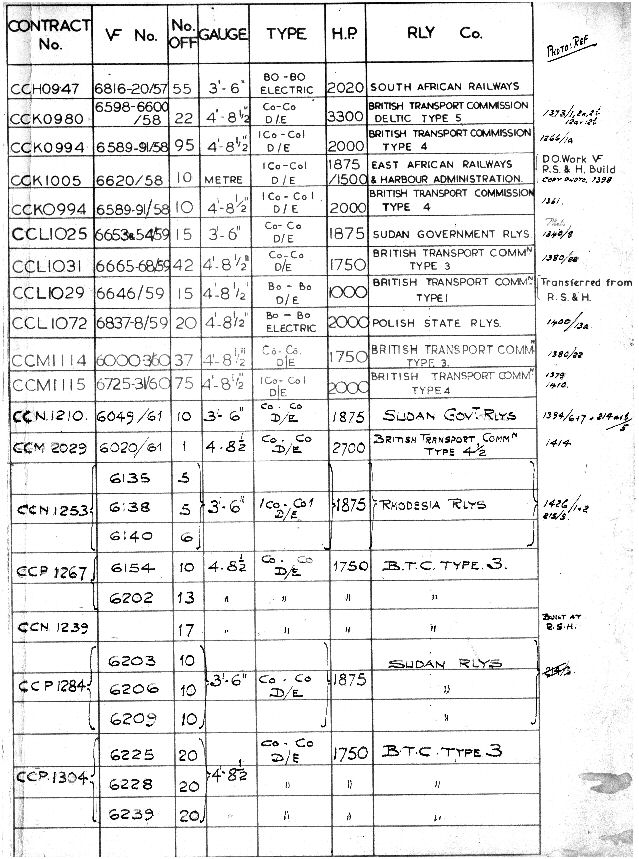 CONTRACT No. VF No. No. OFF GAUGE TYPE H.P. RLY Co. PHOTO: REF
CCH0947 6816-20/57 55 3'-6" BO-BO ELECTRIC 2020 SOUTH AFRICAN RAILWAYS
CCK0980 6598-6600/58 22 4'-8½" Co-Co D/E 3300 BRITISH TRANSPORT COMMISSION DELTIC TYPE 5
CCK0994 6589-91/58 95 4'-8½" 1Co-Co1 D/E 2000 BRITISH TRANSPORT COMMISSION TYPE 4 1266/1a
CCK1005 6620/58 10 METRE 1Co-Co1 D/E 1875/1500 EAST AFRICAN RAILWAYS & HARBOUR ADMINISTRATION. D.O. Work VF R.S. & H. Build COPY PHOTO. 1398
CCK0994 6589-91/58 10 4'-8½" 1Co-Co1 D/E 2000 BRITISH TRANSPORT COMMISSION TYPE 4 1361.
CCL1025 6653&54/59 15 3'-6" Co-Co D/E 1875 SUDAN GOVERNMENT RLYS 1340/8
CCL1031 6665-68/59 42 4'-8½" Co-Co D/E 1750 BRITISH TRANSPORT COMMN TYPE 3 1380/22
CCL1029 6646/59 15 4'-8½" Bo-Bo D/E 1000 BRITISH TRANSPORT COMMN TYPE1 Transferred from R.S. & H.
CCL1072 6837-8/59 20 4'-8½" Bo-Bo ELECTRIC 2000 POLISH STATE RLYS. 1400/13a
CCM1114 6000-3/60 37 4'-8½" Co-Co. D/E 1750 BRITISH TRANSPORT COMMN TYPE 3. 1380/22
CCM1115 6725-31/60 75 4'-8½" 1Co-Co1 D/E 2000 BRITISH TRANSPORT COMMN TYPE4 1379 1410.
CCN.1210. 6049/61 10 3'-6" Co.Co. D/E 1875 SUDAN GOVT. RLYS 1394/6+7
CCM 2029 6020/61 1 4.8½ Co.Co D/E 2700 BRITISH TRANSPORT COMMN TYPE 4½ 1414.
6135 5
CCN.1253 6138 5 3'-6" 1Co-Co1 D/E 1875 RHODESIA RLYS 1426/1+2
6140 6
CCP 1267 6154 10 4.8½ Co.Co D/E 1750 B.T.C. TYPE.3.
6202 13 " " " "
CCN. 1239 17 " " " " BUILT AT R.S.H.
6203 10 SUDAN RLYS
CCP1284 6206 10 3'-6" Co.Co D/E 1875 "
6209 10 "
6225 20 Co.Co D/E 1750 B.T.C. TYPE 3
CCP.1304 6228 20 4'-8½ " " "
6239 20 " " "